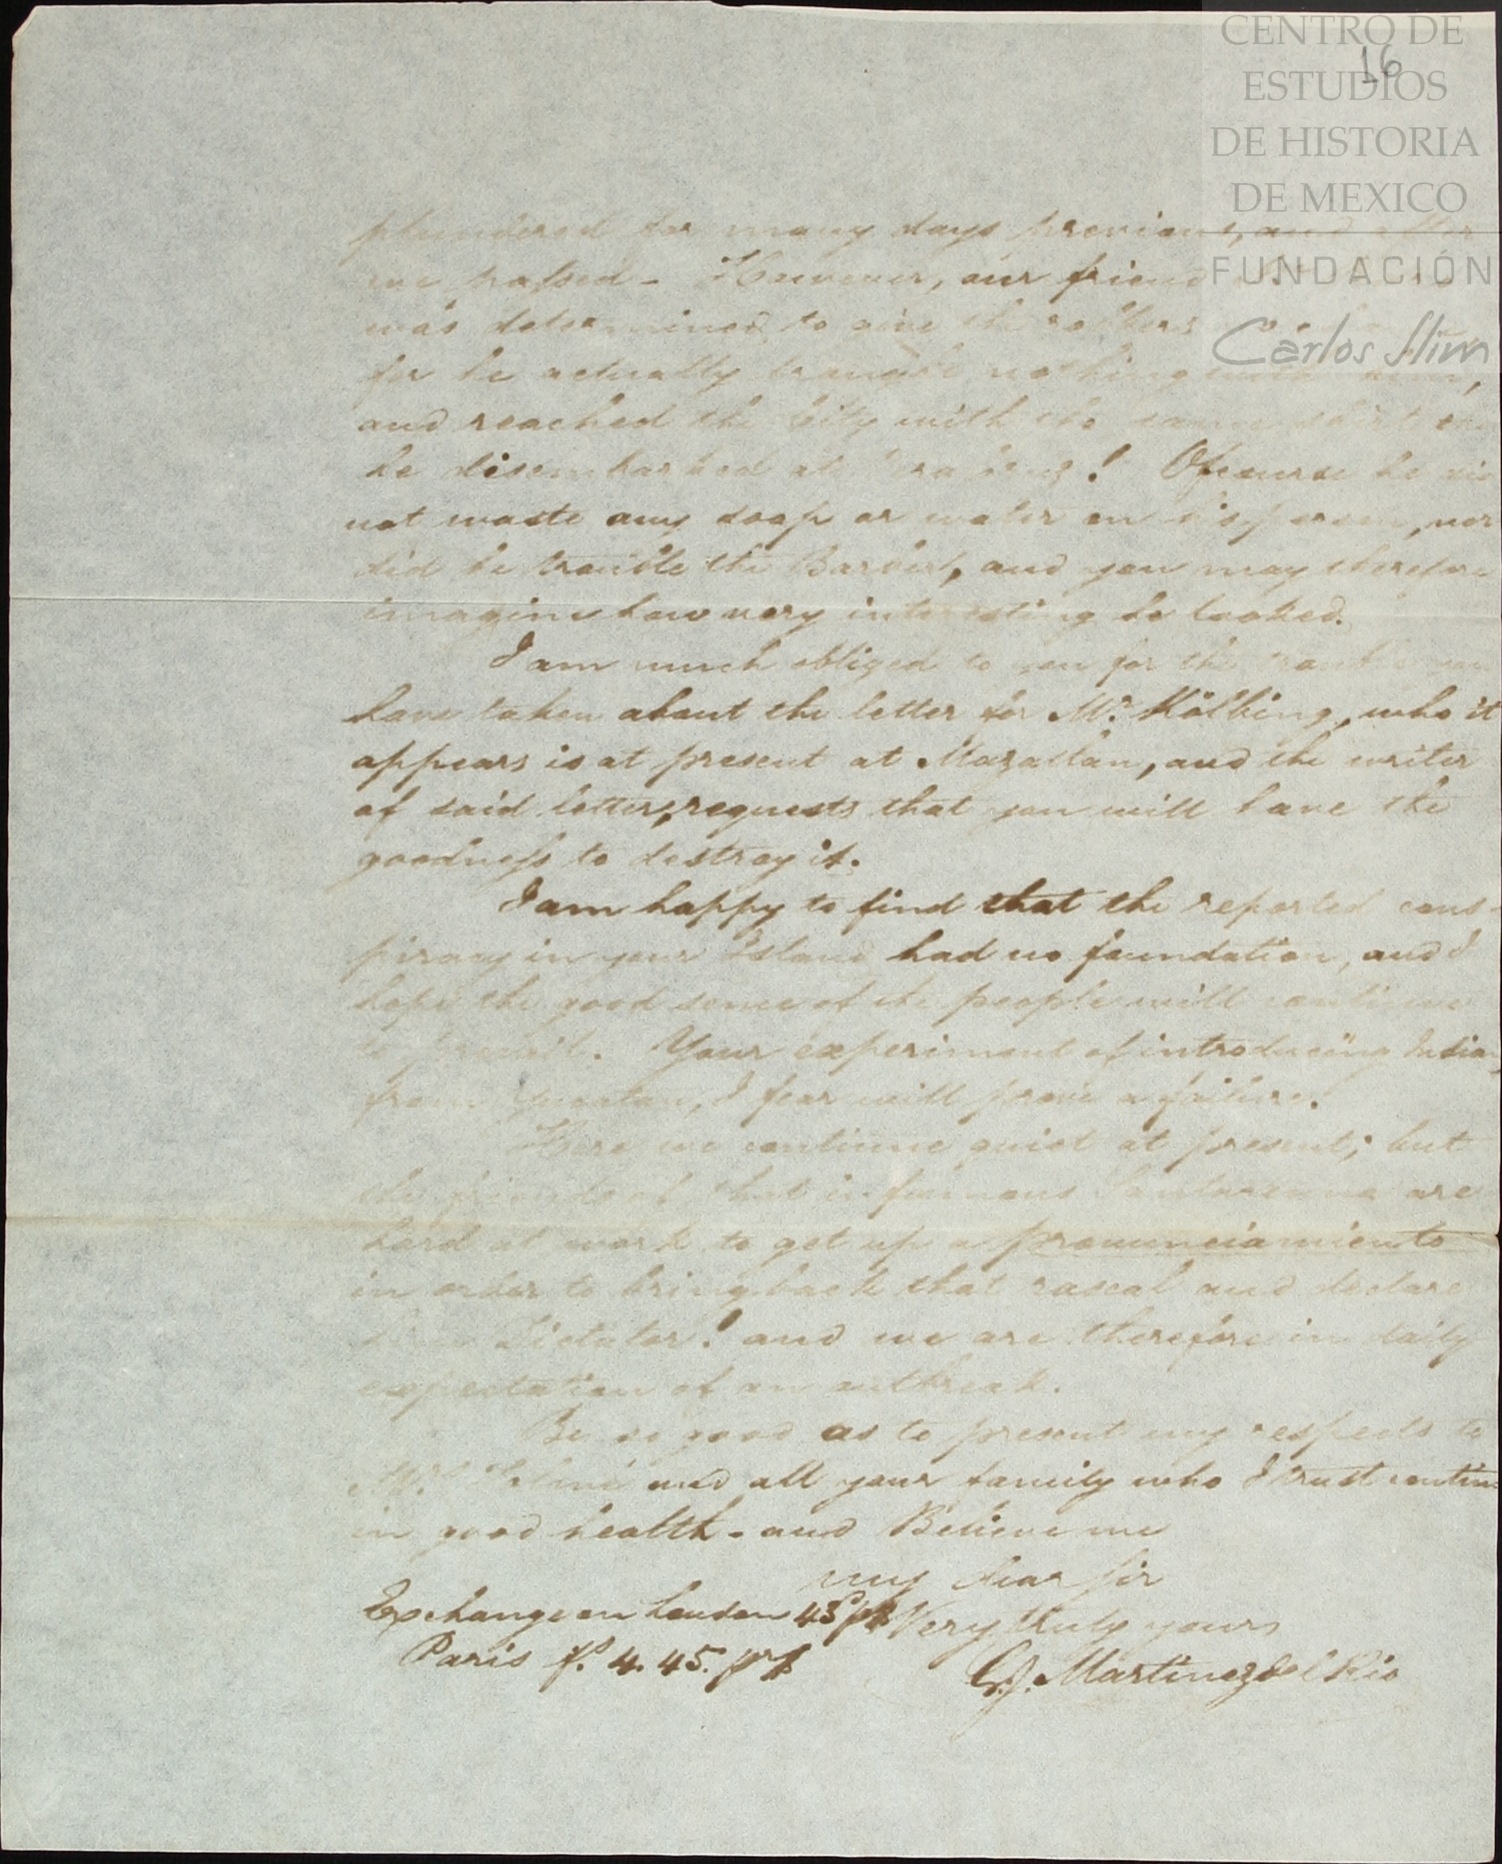 CENTRO DE
ESTUDIOS
DE HISTORIA
DE MEXICO
FUNDACIÓN
Carlos Slim
16
plundered for many days previous, and after
we passed - However, our friend
was determined to give the robbers
for he actually brought nothing with him,
and reached the City with the same shirt
he disembarked at Vera Cruz! Ofcourse he did
not waste any soap or water on his person, nor
did he trouble the Barbers, and you may therefore
imagine how very interesting he looked.
I am much obliged to you for the trouble you
have taken about the letter for Mr. Kölbing, who it
appears is at present at Mazatlan, and the writer
of said letter, requests that you will have the
goodness to destroy it.
I am happy to find that the reported cons-
piracy in your Island had no foundation, and I
hope the good sense of the people will continue
to prevail. Your experiment of introducing Indians
from Yucatan, I fear will prove a failure.
Here we continue quiet at present; but
the friends of that infamous Santa Anna are
hard at work to get up a pronunciamiento
in order to bring back that rascal and declare
him Dictator! and we are therefore in daily
expectation of an outbreak.
Be so good as to present my respects to
and all your family who I trust continue
in good health - and Believe me
my dear Sir
Very truly yours
Exchange on London 45
Paris f. 4.45.
Martinez del Rio